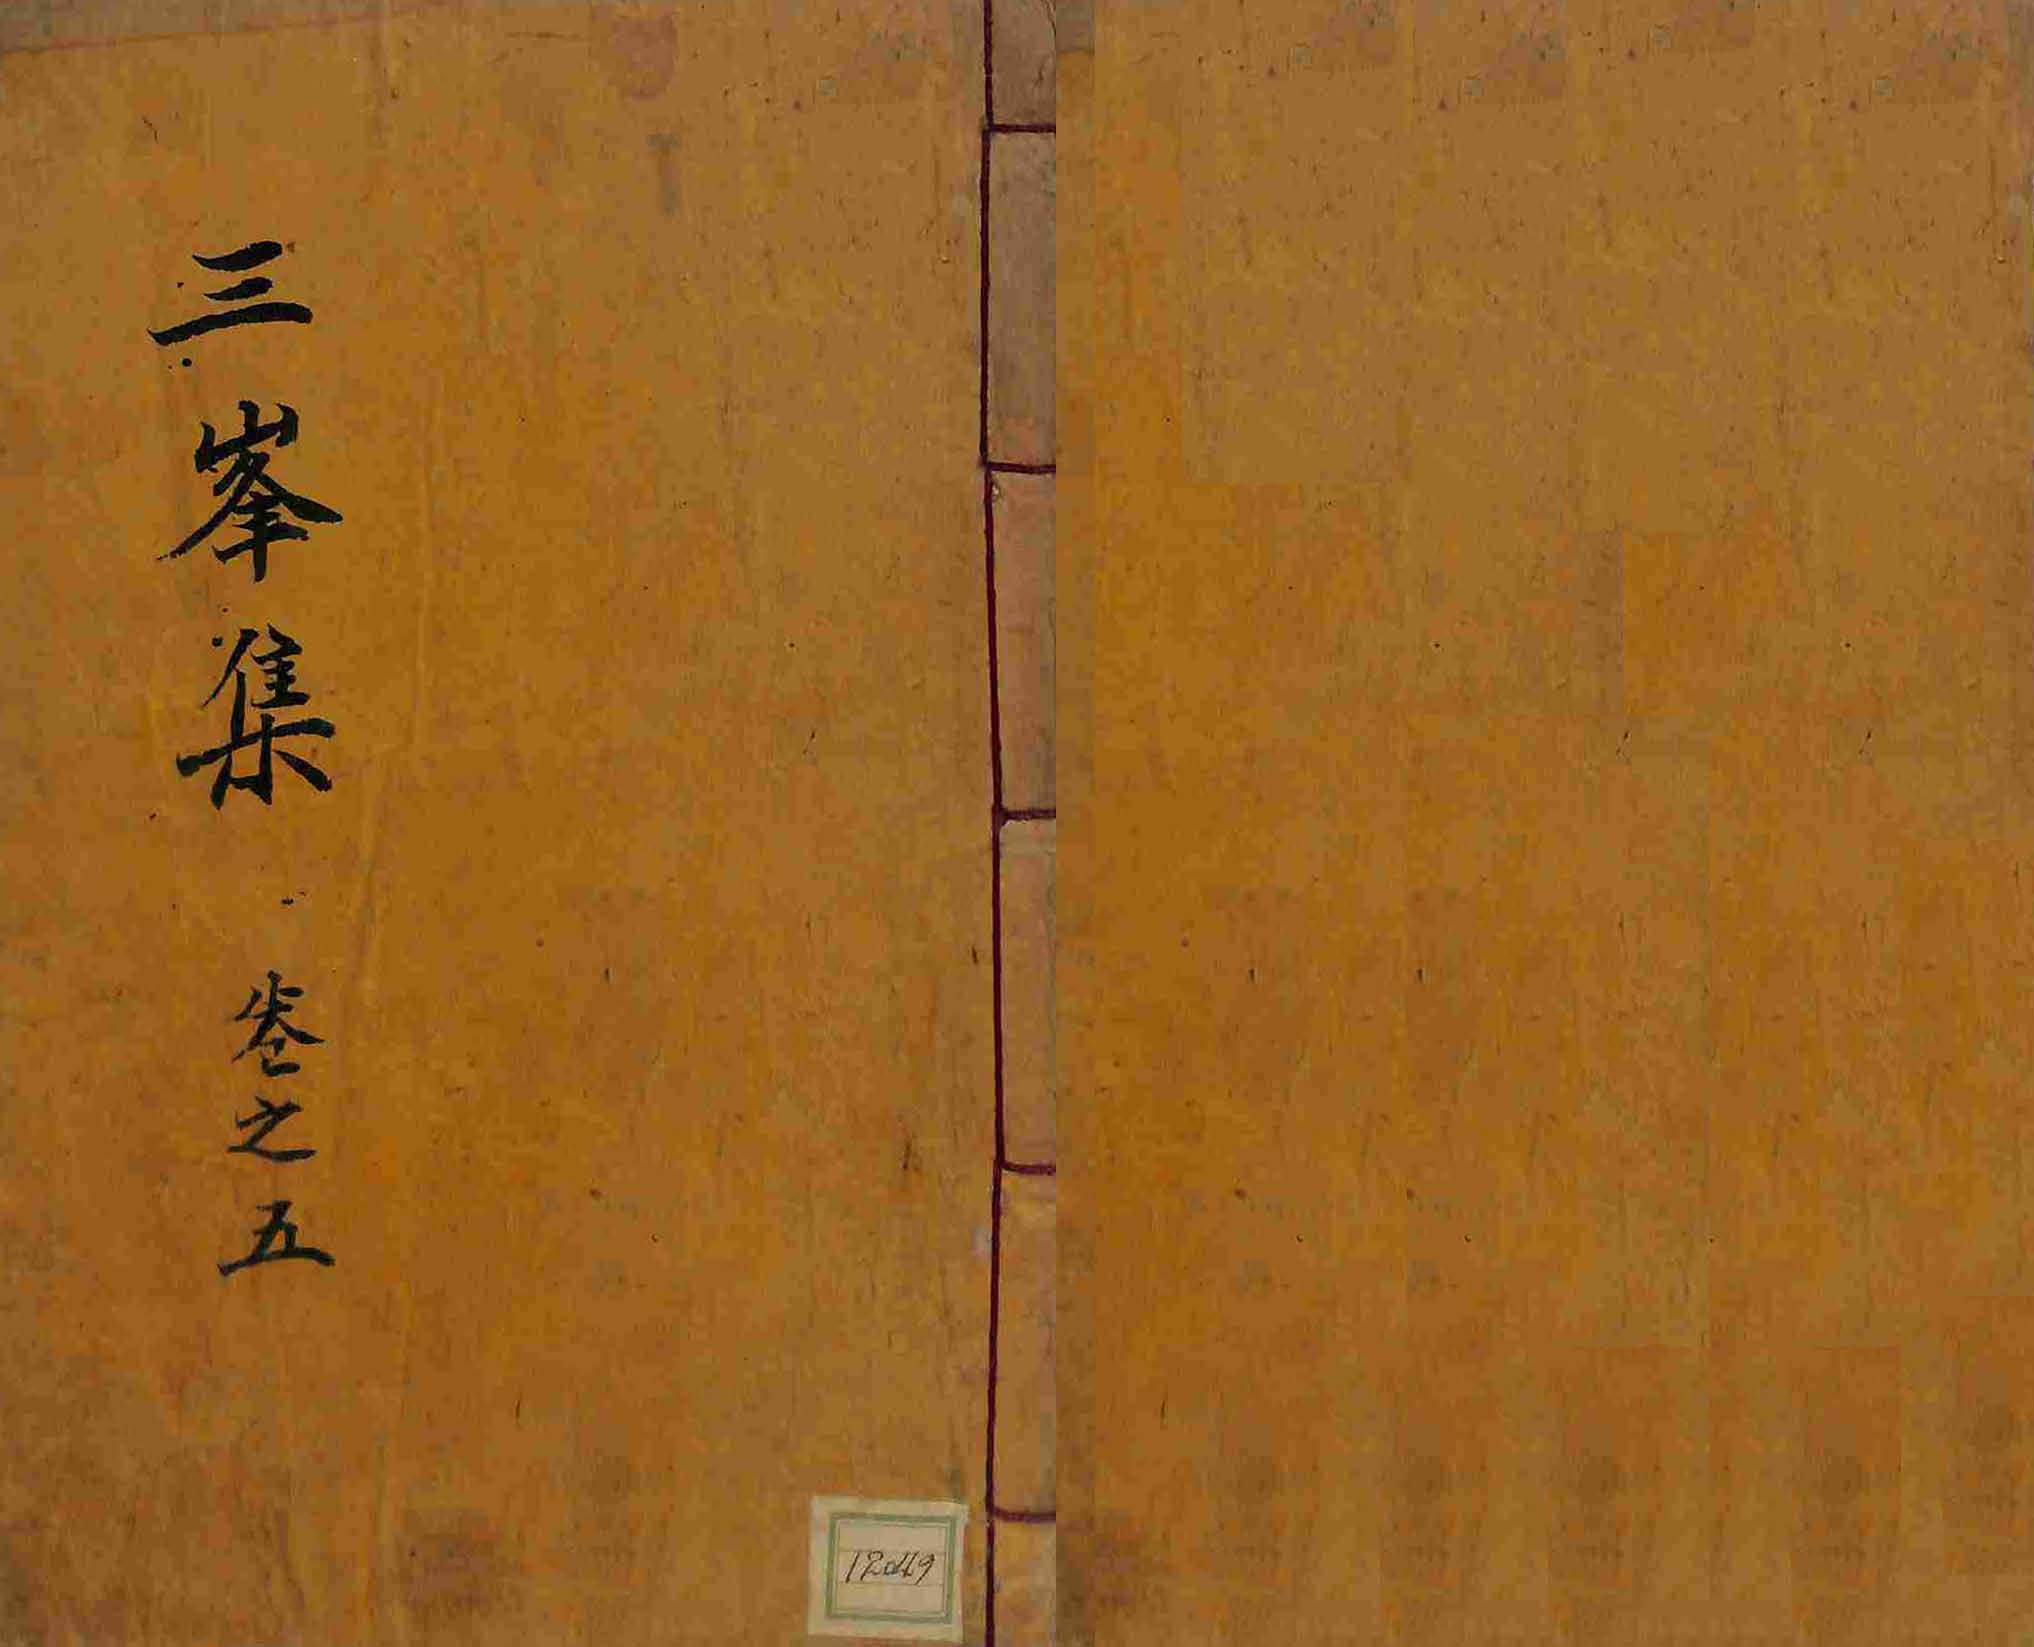 三峯集 卷之五
12049